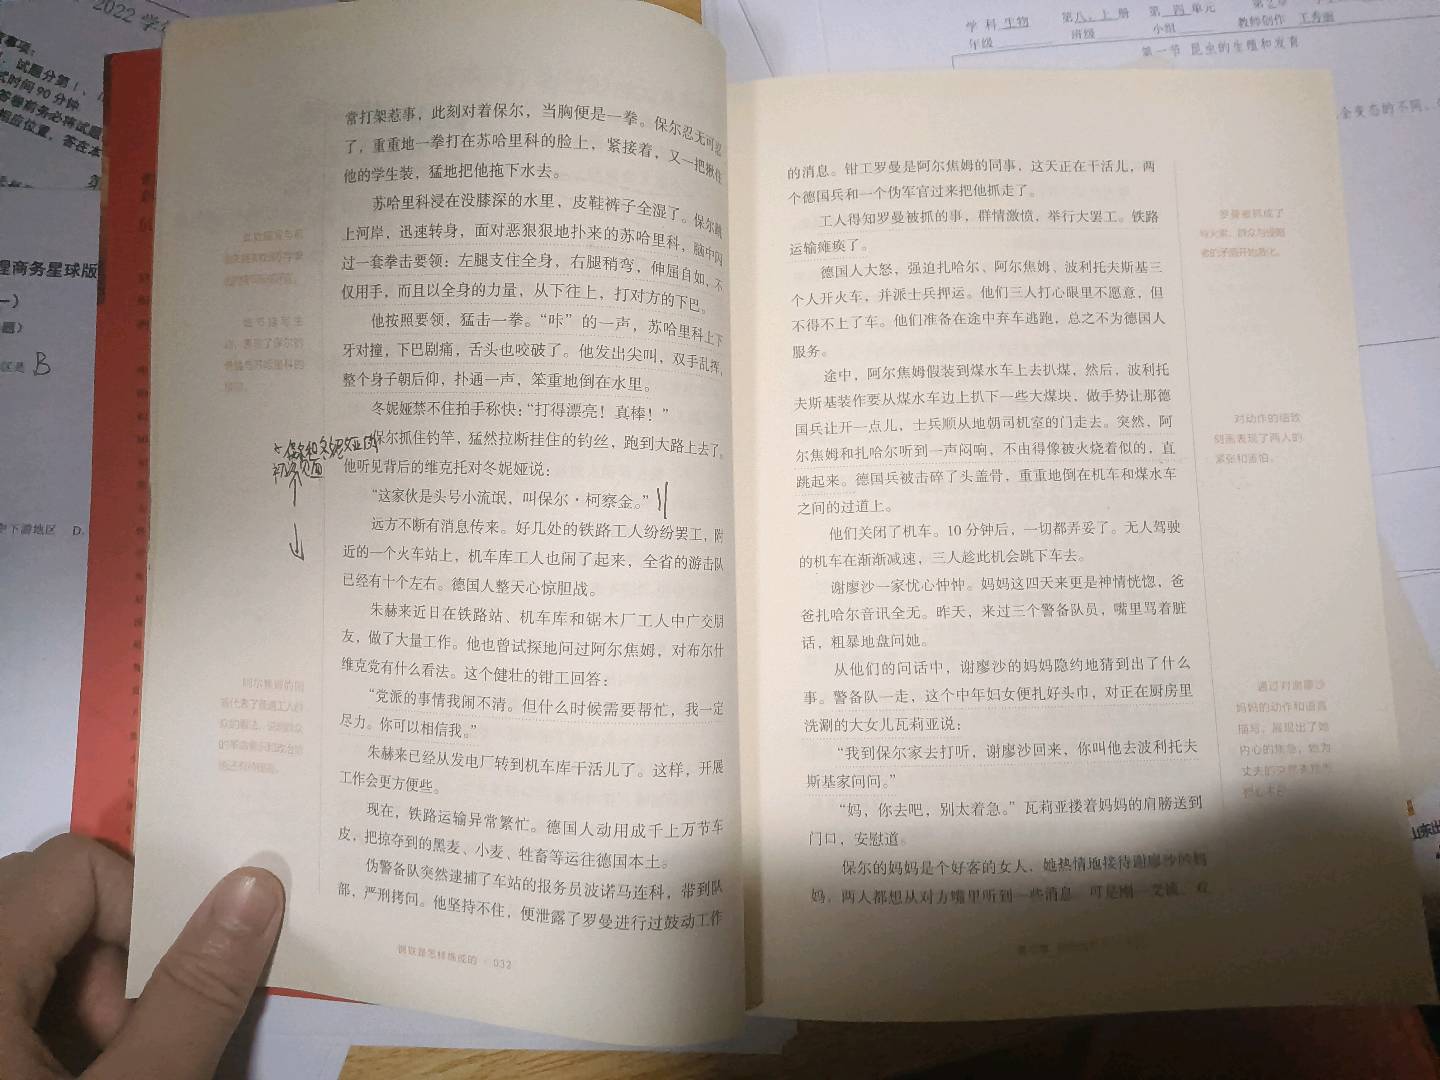 2022学
意事项:
试题分第Ⅰ、
试时间90分钟
答卷前务必将试题
相应位置,答在本
星商务星球版
一)
题)
区是 B
下游地区 D.
常打架惹事,此刻对着保尔,当胸便是一拳。保尔忍无可忍
了,重重地一拳打在苏哈里科的脸上,紧接着,又一把揪住
他的学生装,猛地把他拖下水去。
苏哈里科浸在没膝深的水里,皮鞋裤子全湿了。保尔跳
上河岸,迅速转身,面对恶狠狠地扑来的苏哈里科,脑中闪
过一套拳击要领:左腿支住全身,右腿稍弯,伸屈自如,不
仅用手,而且以全身的力量,从下往上,打对方的下巴。
他按照要领,猛击一拳。“咔”的一声,苏哈里科上下
牙对撞,下巴剧痛,舌头也咬破了。他发出尖叫,双手乱挥,
整个身子朝后仰,扑通一声,笨重地倒在水里。
冬妮娅禁不住拍手称快:“打得漂亮!真棒!”
保尔抓住钓竿,猛然拉断挂住的钓丝,跑到大路上去了。
他听见背后的维克托对冬妮娅说:
“这家伙是头号小流氓,叫保尔·柯察金。”
远方不断有消息传来。好几处的铁路工人纷纷罢工,附
近的一个火车站上,机车库工人也闹了起来,全省的游击队
已经有十个左右。德国人整天心惊胆战。
朱赫来近日在铁路站、机车库和锯木厂工人中广交朋
友,做了大量工作。他也曾试探地问过阿尔焦姆,对布尔什
维克党有什么看法。这个健壮的钳工回答:
“党派的事情我闹不清。但什么时候需要帮忙,我一定
尽力。你可以相信我。”
朱赫来已经从发电厂转到机车库干活儿了。这样,开展
工作会更方便些。
现在,铁路运输异常繁忙。德国人动用成千上万节车
皮,把掠夺到的黑麦、小麦、牲畜等运往德国本土。
伪警备队突然逮捕了车站的报务员波诺马连科,带到队
部,严刑拷问。他坚持不住,便泄露了罗曼进行过鼓动工作
保尔和冬妮娅的
初次见面
阿尔焦姆的回
答代表了普通工人群
众的看法,说明群众
钢铁是怎样炼成的 · 032
学科 生物 第八.上 册 第 四 单元 第2章
年级 班级 小组 教师创作 王秀丽
第一节 昆虫的生殖和发育
全变态的不同。
的消息。钳工罗曼是阿尔焦姆的同事,这天正在干活儿,两
个德国兵和一个伪军官过来把他抓走了。
工人得知罗曼被抓的事,群情激愤,举行大罢工。铁路
运输瘫痪了。
德国人大怒,强迫扎哈尔、阿尔焦姆、波利托夫斯基三
个人开火车,并派士兵押运。他们三人打心眼里不愿意,但
不得不上了车。他们准备在途中弃车逃跑,总之不为德国人
服务。
途中,阿尔焦姆假装到煤水车上去扒煤,然后,波利托
夫斯基装作要从煤水车边上扒下一些大煤块,做手势让那德
国兵让开一点儿,士兵顺从地朝司机室的门走去。突然,阿
尔焦姆和扎哈尔听到一声闷响,不由得像被火烧着似的,直
跳起来。德国兵被击碎了头盖骨,重重地倒在机车和煤水车
之间的过道上。
他们关闭了机车。10分钟后,一切都弄妥了。无人驾驶
的机车在渐渐减速,三人趁此机会跳下车去。
谢廖沙一家忧心忡忡。妈妈这四天来更是神情恍惚,爸
爸扎哈尔音讯全无。昨天,来过三个警备队员,嘴里骂着脏
话,粗暴地盘问她。
从他们的问话中,谢廖沙的妈妈隐约地猜到出了什么
事。警备队一走,这个中年妇女便扎好头巾,对正在厨房里
洗涮的大女儿瓦莉亚说:
“我到保尔家去打听,谢廖沙回来,你叫他去波利托夫
斯基家问问。”
“妈,你去吧,别太着急。”瓦莉亚搂着妈妈的肩膀送到
门口,安慰道。
保尔的妈妈是个好客的女人,她热情地接待谢廖沙的妈
妈,两人都想从对方嘴里听到一些消息,可是刚一交谈,双
罗曼被抓成了
导火索,群众与侵略
者的矛盾开始激化。
对动作的细致
刻画表现了两人的
紧张和害怕。
通过对谢廖沙
妈妈的动作和语言
描写,展现出了她
内心的焦急,她为
丈夫的突然失踪而
担心不已。